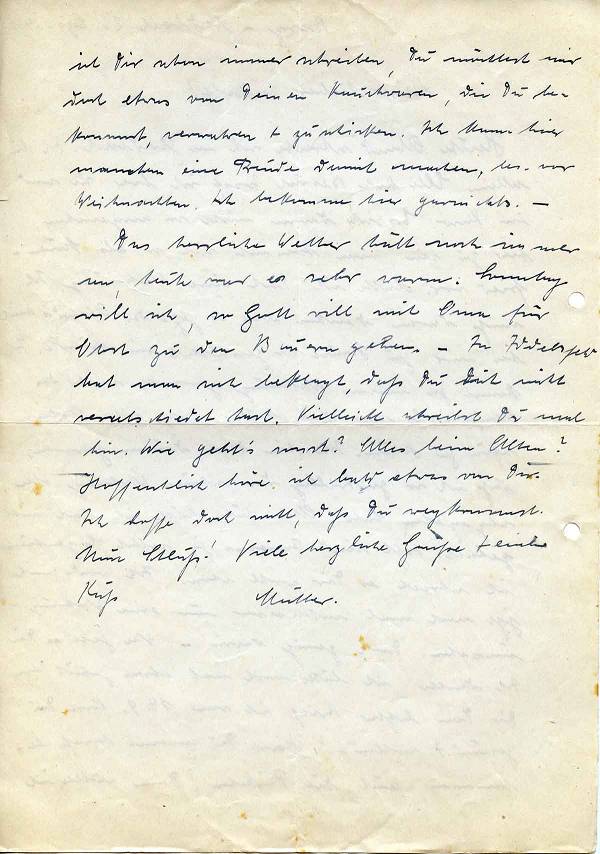 ich Dir schon immer schreiben, Du möchtest mir
doch etwas von Deinen Rauchwaren, die Du be-
kommst, verwahren + zuschicken. Ich kann hier
manchem eine Freude damit machen, bes. vor
Weihnachten. Ich bekomme hier garnichts. —
Das herrliche Wetter hält noch immer
an, heute war es sehr warm. Sonntag
will ich, so Gott will mit Oma für
Obst zu den Bauern gehen. — In
hat man sich beklagt, daß Du Dich nicht
verabschiedet hast. Vielleicht schreibst Du mal
hin. Wie geht's sonst? Alles beim Alten?
Hoffentlich höre ich bald etwas von Dir.
Ich hoffe doch nicht, daß Du wegkommst.
Nun Schluß! Viele herzliche Grüße +
Kuß Mutter.